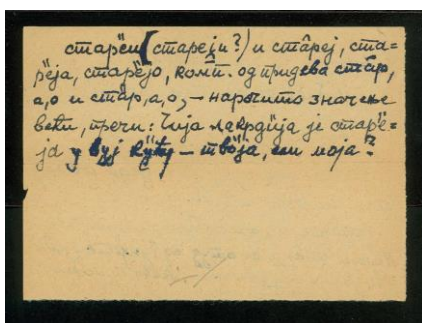 старе̏и (старејѝ?) и ста̑реј, ста=
ре̏ја, старе̏јо, комп. од придева ста̑р,
а, о и ста̑р, а, о, – нарочито значење
већи, пречи: Чија лакрди̏ја је старе̏=
ја у ву̏ј ку̏ћу – тво̏ја, ели моја?